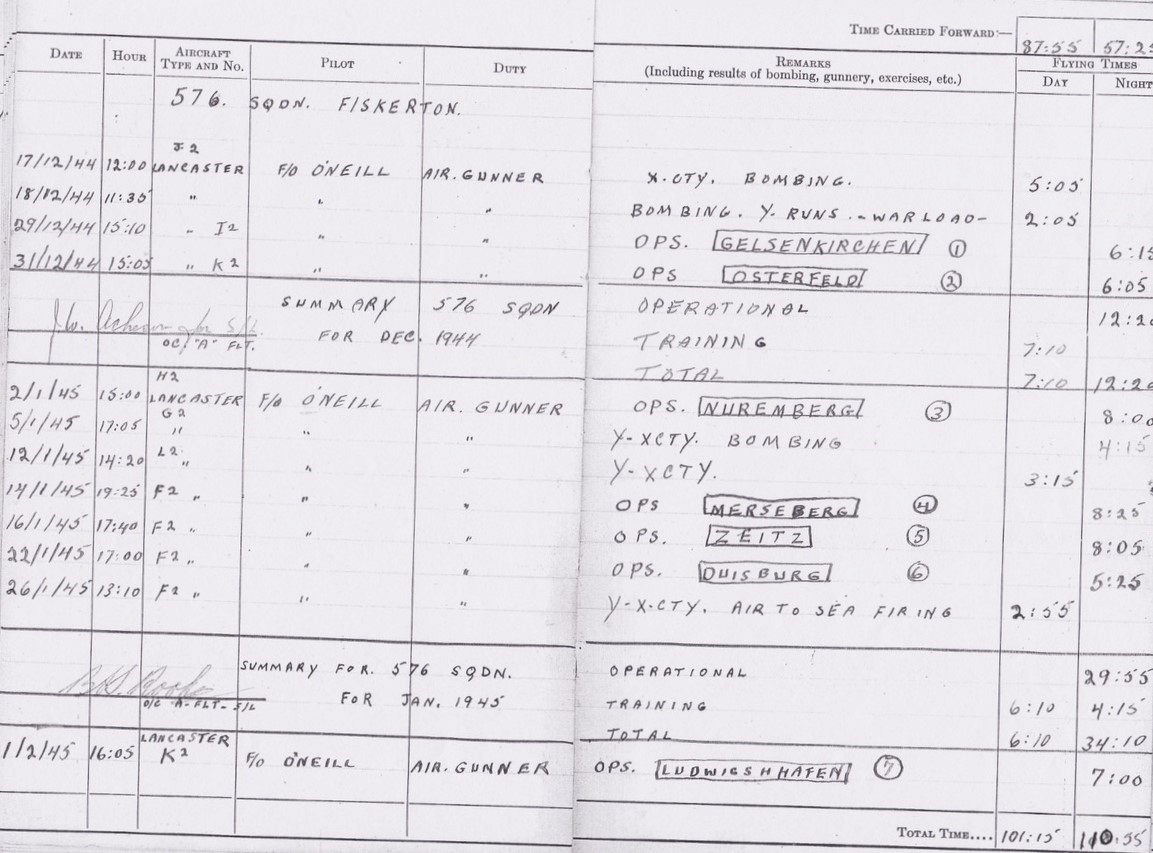 TIME CARRIED FORWARD:— 87:55 57:25
DATE HOUR AIRCRAFT TYPE AND NO. PILOT DUTY REMARKS (Including results of bombing, gunnery, exercises, etc.) FLYING TIMES DAY NIGHT
576. SQDN. FISKERTON.
J2
17/12/44 12:00 LANCASTER F/O O'NEILL AIR. GUNNER X.CTY. BOMBING. 5:05
18/12/44 11:35 " " " BOMBING. Y-RUNS. -WARLOAD- 2:05
29/12/44 15:10 " I2 " " OPS. GELSENKIRCHEN ① 6:15
31/12/44 15:05 " K2 " " OPS OSTERFELD ② 6:05
SUMMARY 576 SQDN OPERATIONAL 12:20
J.W. S/L
OC. "A" FLT. FOR DEC. 1944 TRAINING 7:10
TOTAL 7:10 12:20
H2
2/1/45 15:00 LANCASTER F/O O'NEILL AIR. GUNNER OPS. NUREMBERG ③ 8:00
5/1/45 17:05 G2 " " " Y-XCTY. BOMBING 4:15
12/1/45 14:20 L2 " " " Y-XCTY. 3:15
14/1/45 19:25 F2 " " " OPS MERSEBERG ④ 8:25
16/1/45 17:40 F2 " " " OPS. ZEITZ ⑤ 8:05
22/1/45 17:00 F2 " " " OPS. DUISBURG ⑥ 5:25
26/1/45 13:10 F2 " " " Y-X-CTY. AIR TO SEA FIRING 2:55
SUMMARY FOR. 576 SQDN. OPERATIONAL 29:55
O/C "A-FLT- S/L FOR JAN. 1945 TRAINING 6:10 4:15
TOTAL 6:10 34:10
LANCASTER
1/2/45 16:05 K2 F/O O'NEILL AIR. GUNNER OPS. LUDWIGSHHAFEN ⑦ 7:00
TOTAL TIME.... 101:15 110:55